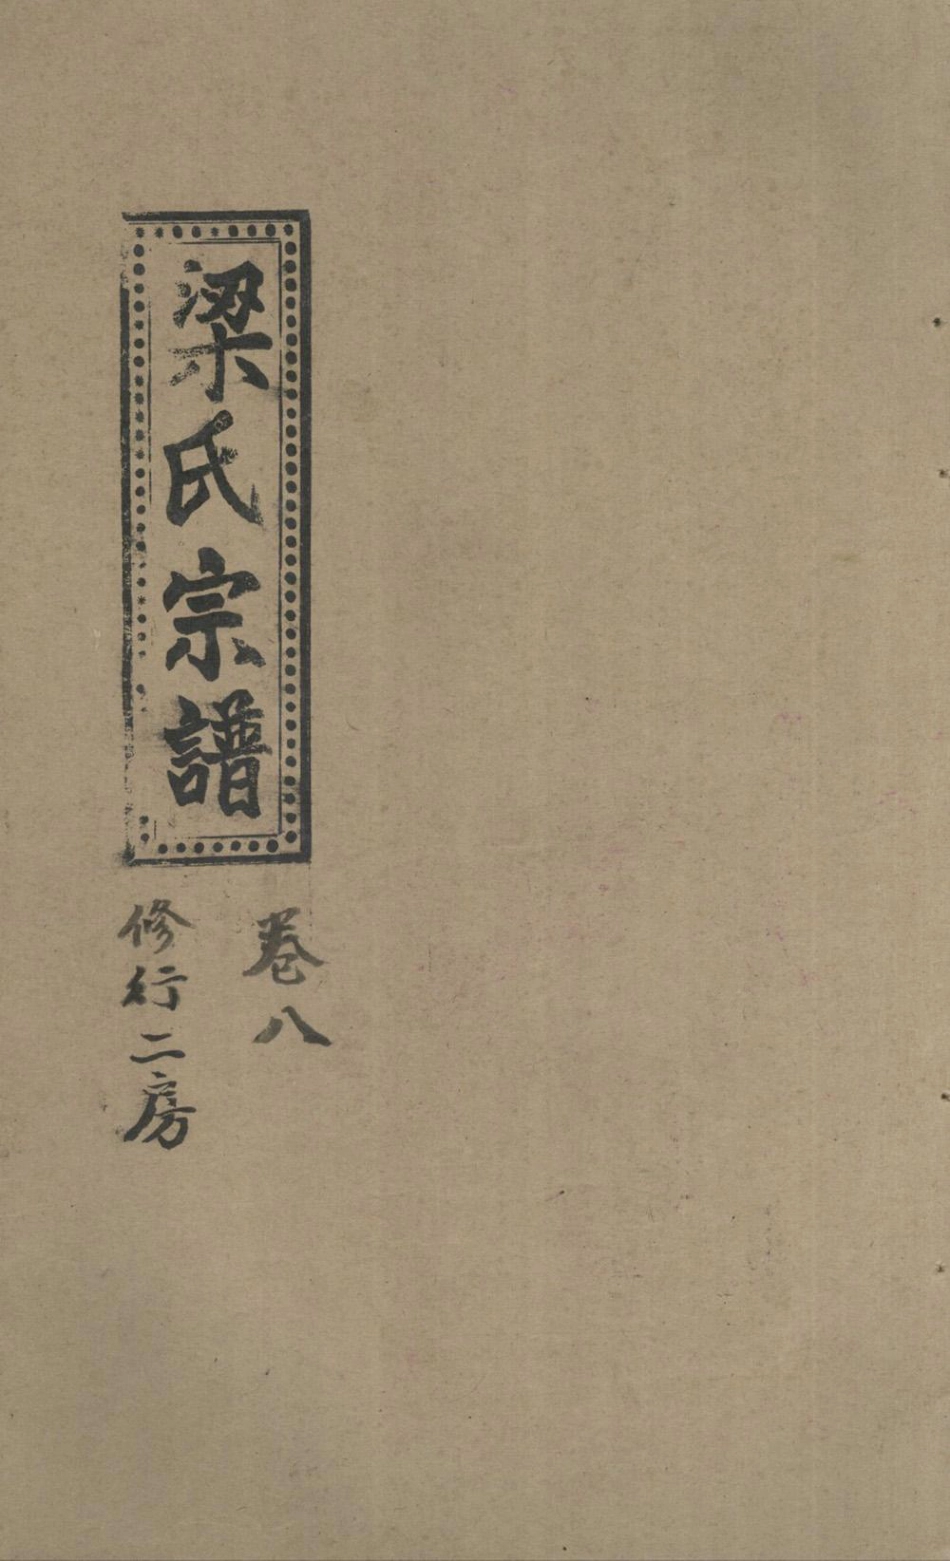 梁氏宗譜
卷八
修行二房